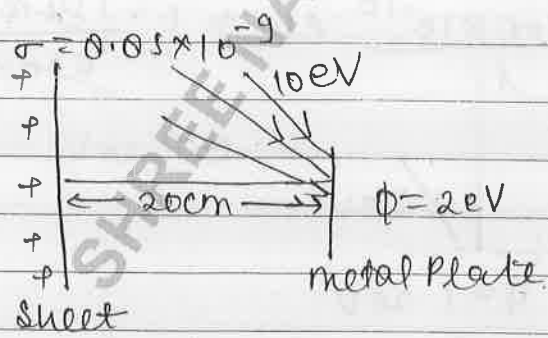 σ = 0.05×10⁻⁹
10eV
+
+
+
+
+
20cm
ϕ = 2eV
metal Plate
Sheet
SHREE NA